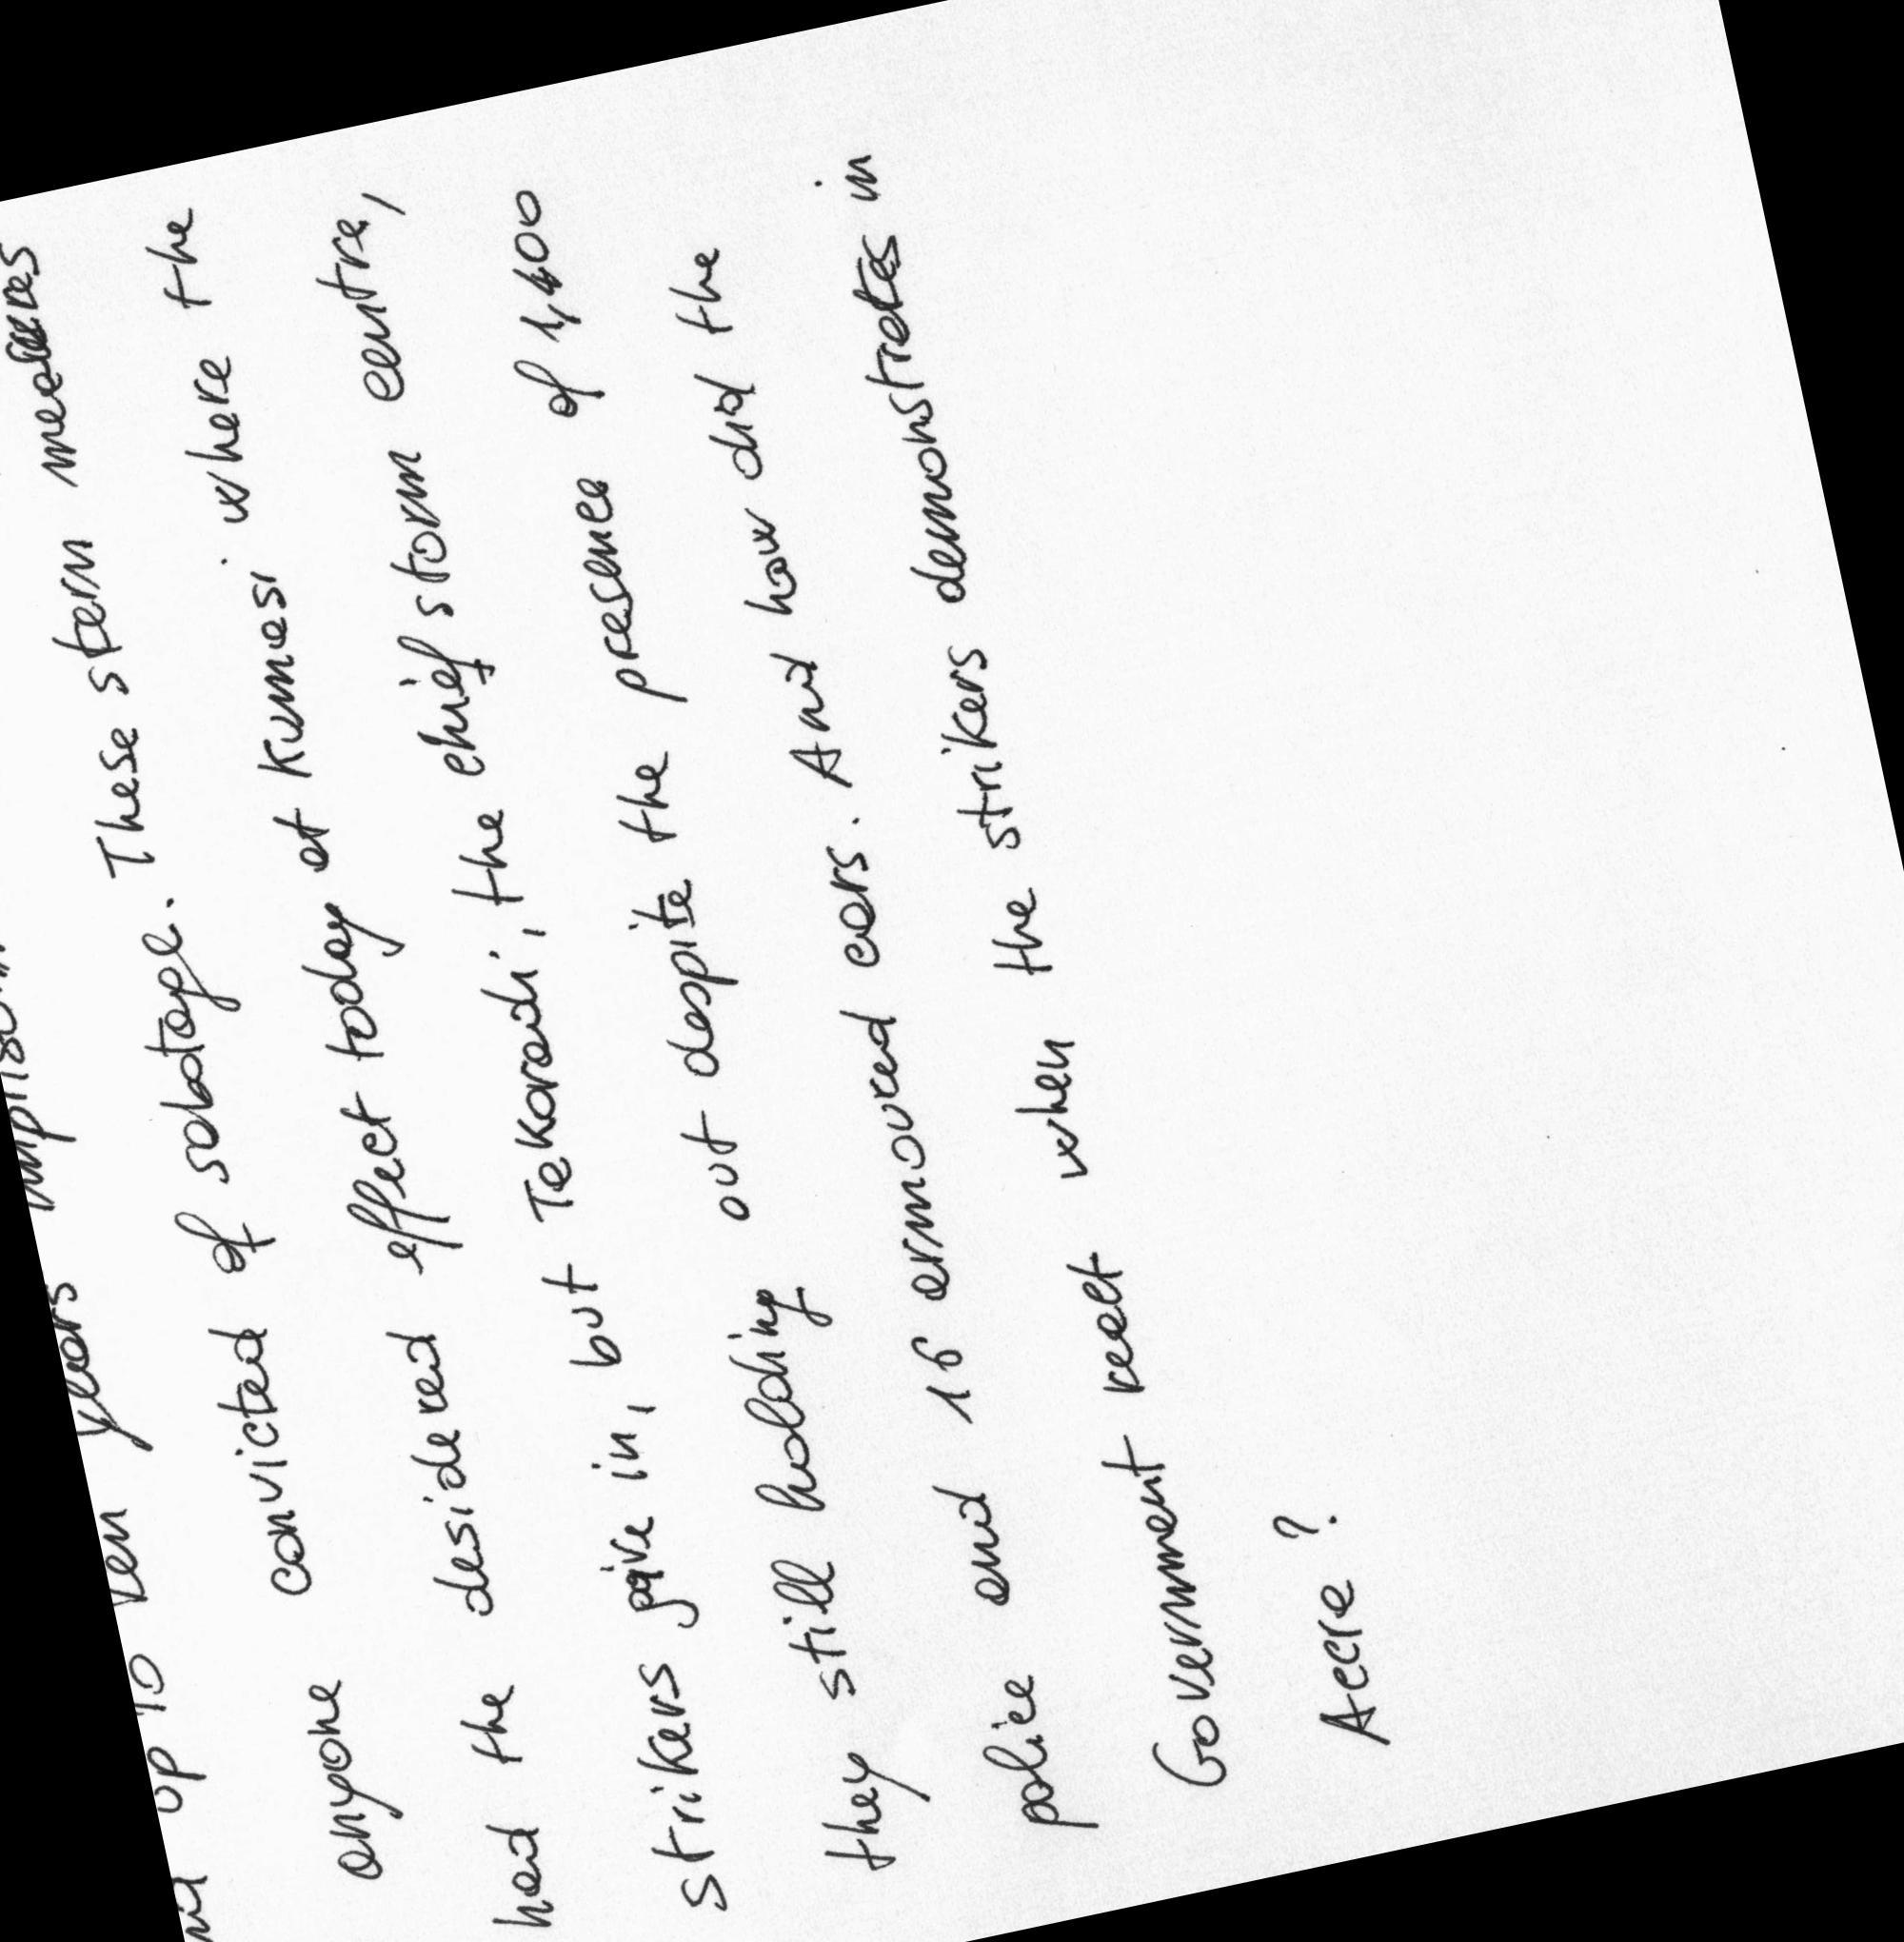 up to ten years imprison
anyone convicted of sabotage. These stern measures
had the desidered effect today at Kumasi where the
strikers give in, but Takoradi, the chief storm centre,
they still holding out despite the presence of 1,400
police and 16 armoured cars. And how did the
Government react when the strikers demonstrates in
Accra?